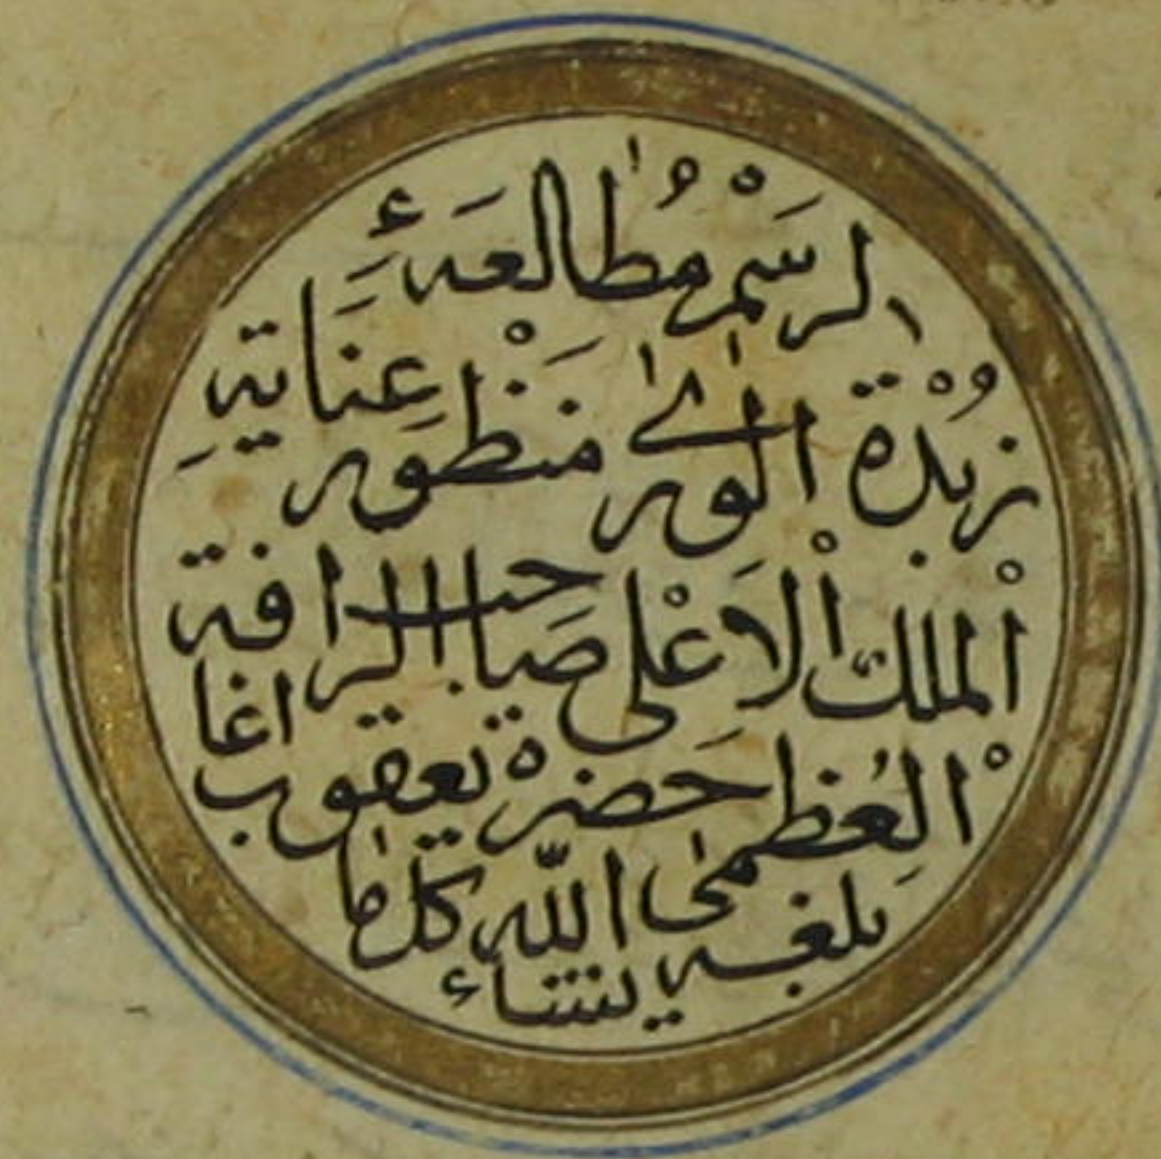 لرَسْمِ مُطَالَعَةِ
زُبْدَة الوَرٰى مَنْظُورِ عِنَايَةِ
الْملك الْاَعْلى صَاحب الرافة
الْعُظمٰى حَضرة يعقوب اغا
بلغه اللّٰه كل ما
يشاء